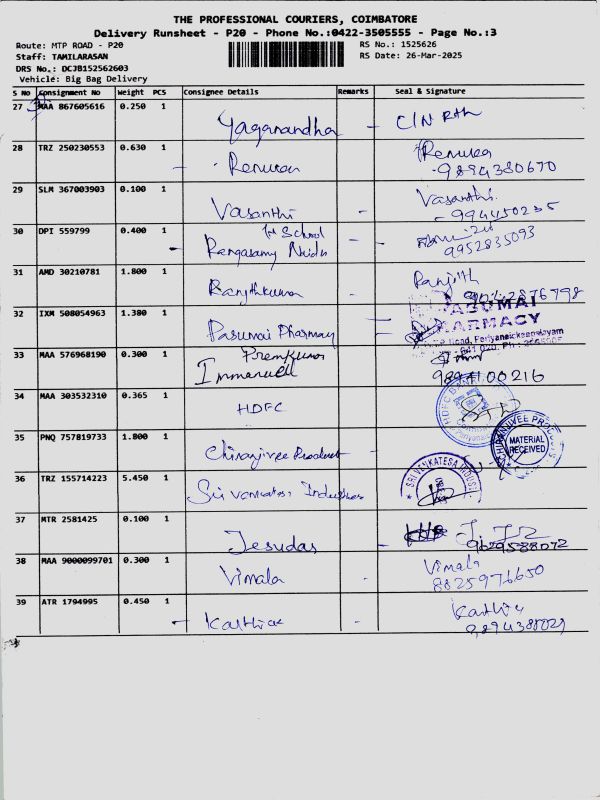 THE PROFESSIONAL COURIERS, COIMBATORE
Delivery Runsheet - P20 - Phone No.:0422-3505555 - Page No.:3
Route: MTP ROAD - P20
Staff: TAMILARASAN
DRS No.: DCJB152562603
Vehicle: Big Bag Delivery
RS No.: 1525626
RS Date: 26-Mar-2025
S No Consignment No Weight PCS Consignee Details Remarks Seal & Signature
27 MAA 867605616 0.250 1 Yaganandha - C/N
28 TRZ 250230553 0.630 1 Renuka Renuka
9894380670
29 SLM 367003903 0.100 1 Vasanthi - Vasanthi
- 994450235
30 DPI 559799 0.400 1 School
Rangasamy Naidu - 9952835093
31 AMD 30210781 1.800 1 Ranjithkumar - Ranjith
32 IXM 508054963 1.380 1 Pasumai Pharmacy PASUMAI
PHARMACY
Road, Periyanaickenpalayam
33 MAA 576968190 0.300 1 Premkumar
Immanuel 9894100216
34 MAA 303532310 0.365 1 HDFC HDFC BANK
35 PNQ 757819733 1.800 1 Chiranjivee Product CHIRANJIVEE PRODUCTS
MATERIAL
RECEIVED
36 TRZ 155714223 5.450 1 Sri Venkatesa Industries SRI VENKATESA INDUST
37 MTR 2581425 0.100 1 Jesudas
9629588072
38 MAA 9000099701 0.300 1 Vimala - Vimala
8825976650
39 ATR 1794995 0.450 1 - Karthick - Karthick
9894388029